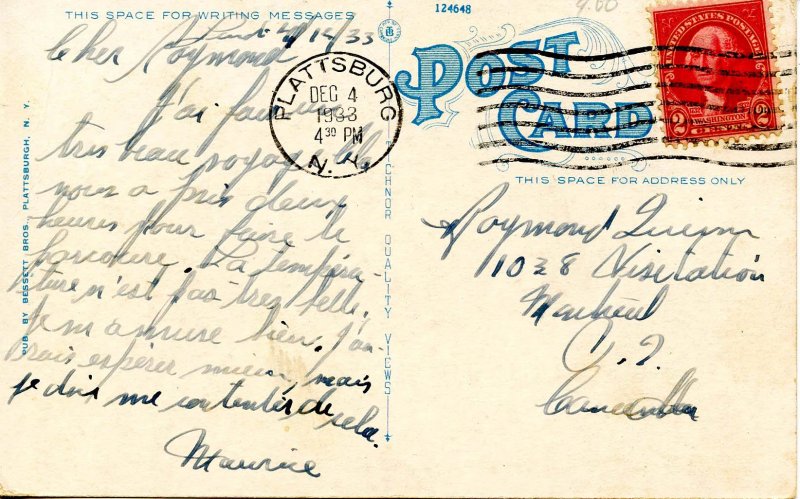 THIS SPACE FOR WRITING MESSAGES
124648
4.00
4/12/33
Cher Raymond
J'ai fait un
très beau voyage. Il
nous a pris deux
heures pour faire le
parcours. La tempéra-
ture n'est pas très belle.
Je m'amuse bien. J'au-
rais espérer mieux, mais
je dois me contenter de
cela.
Maurice
PLATTSBURG
DEC 4
1933
4 30 PM
N. Y.
POST
CARD
UNITED STATES POSTAGE
WASHINGTON
2 2
2 CENTS
THIS SPACE FOR ADDRESS ONLY
Raymond
1028 Visitation
Montréal
P. Q.
Canada
PUB. BY BESSETT BROS., PLATTSBURGH, N. Y.
TECHNOR QUALITY VIEWS